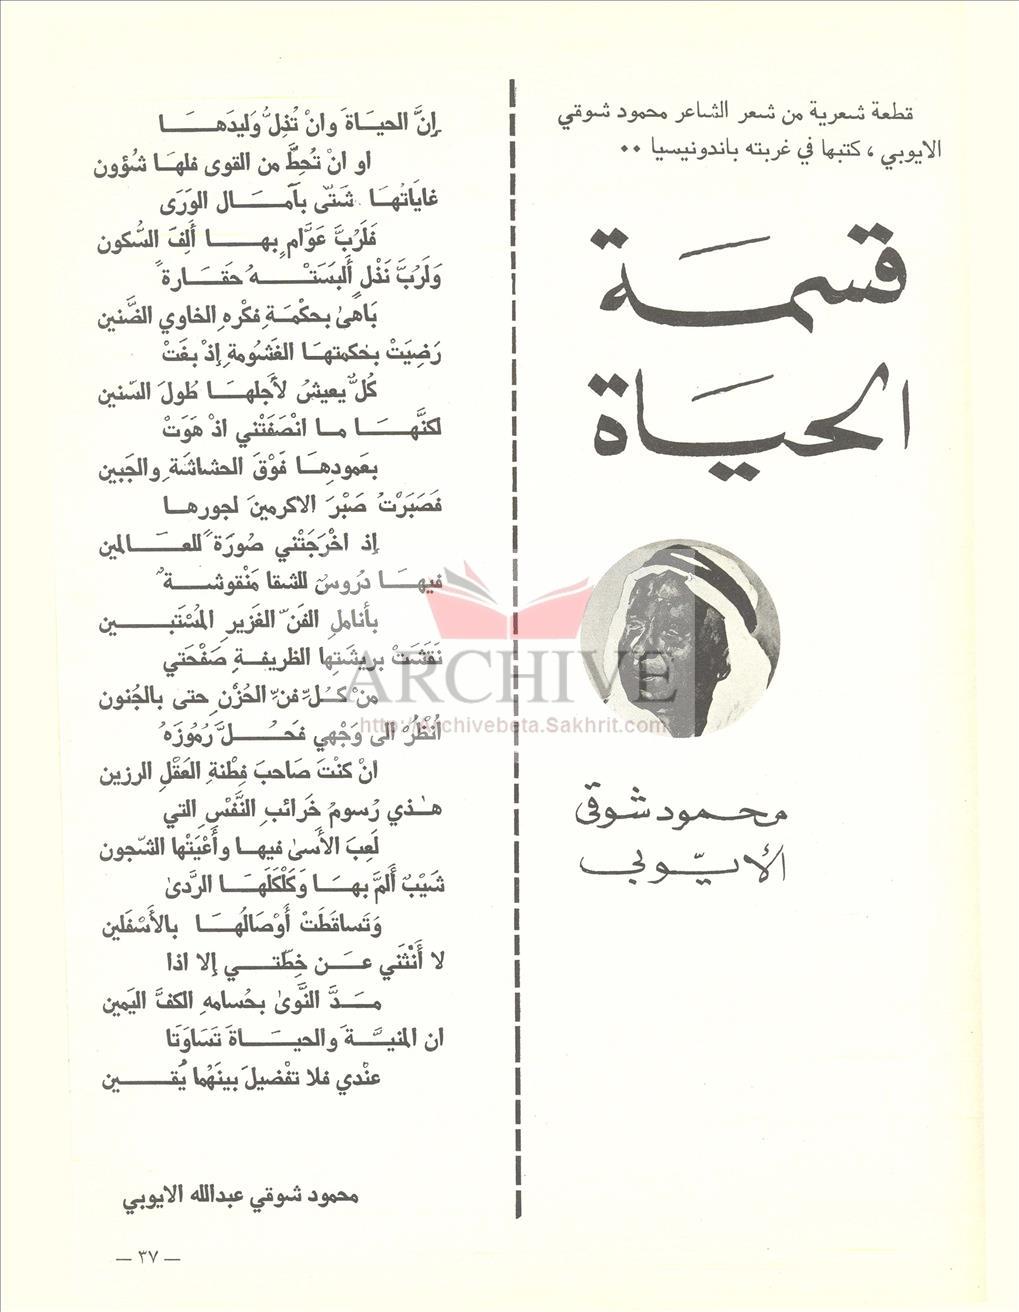 قطعة شعرية من شعر الشاعر محمود شوقي
الايوبي ، كتبها في غربته باندونيسيا ••
قسمة
الحياة
محمود شوقي
الأيّوبي
إنَّ الحيـاةَ وانْ تُذِلُّ وَليدَهـــا
او انْ تُحِطَّ من القوى فلهـا شُؤون
غاياتُهـا شَتّى بآمـــال الوَرَى
فَلَرُبَّ عَوَّامٍ بهـــا أَلِفَ السُّكون
وَلَرُبَّ نَذْلٍ أَلبَسَتْـــهُ حَقَـارةً
بَاهىٰ بحكْمَةِ فكْرهِ الخاوي الضَّنين
رَضِيَتْ بحكمتهـا الغَشُومةِ إذْ بغَتْ
كُلٌّ يعيشُ لأجلهـا طُولَ السّنين
لكنَّهـــا مـا انْصَفَتْني اذْ هَوَتْ
بعَمودهـا فَوْقَ الحشاشَةِ والجَبين
فَصَبَرْتُ صَبْرَ الاكرمينَ لجورهـا
إذ اخْرَجَتْني صُورَةً للعـــالمين
فيهـا دُروسٌ للشقا مَنْقوشـــةٌ
بأناملِ الفَنِّ الغَزيرِ المُسْتَبـــين
نَقَشَتْ بريشَتِها الظريفـةِ صَفْحَتي
منْ كُـلِّ فنِّ الحُزْنِ حتى بالجُنون
اُنْظُرْ الى وَجْهي فَحُـــلَّ رُمُوزَهُ
انْ كنْتَ صَاحبَ فِطْنةِ العَقْلِ الرزين
هـٰذي رُسومُ خَرائبِ النَّفْسِ التي
لَعِبَ الأَسىٰ فيهـا وأَعْيَتْها الشّجون
شَيْبٌ أَلمَّ بهـا وَكَلْكَلَهـا الرَّدىٰ
وَتَساقَطَتْ أَوْصَالُهـا بالأَسْفَلين
لا أَنْثَني عـن خِطّتـي إلا اذا
مـدَّ النَّوىٰ بحُسامهِ الكفَّ اليَمين
ان المنيـةَ والحيـاةَ تَسَاوَتَا
عنْدي فلا تفْضيلَ بينَهُما يُقـــين
محمود شوقي عبدالله الايوبي
— ٣٧ —
ARCHIVE
http://Archivebeta.Sakhrit.com